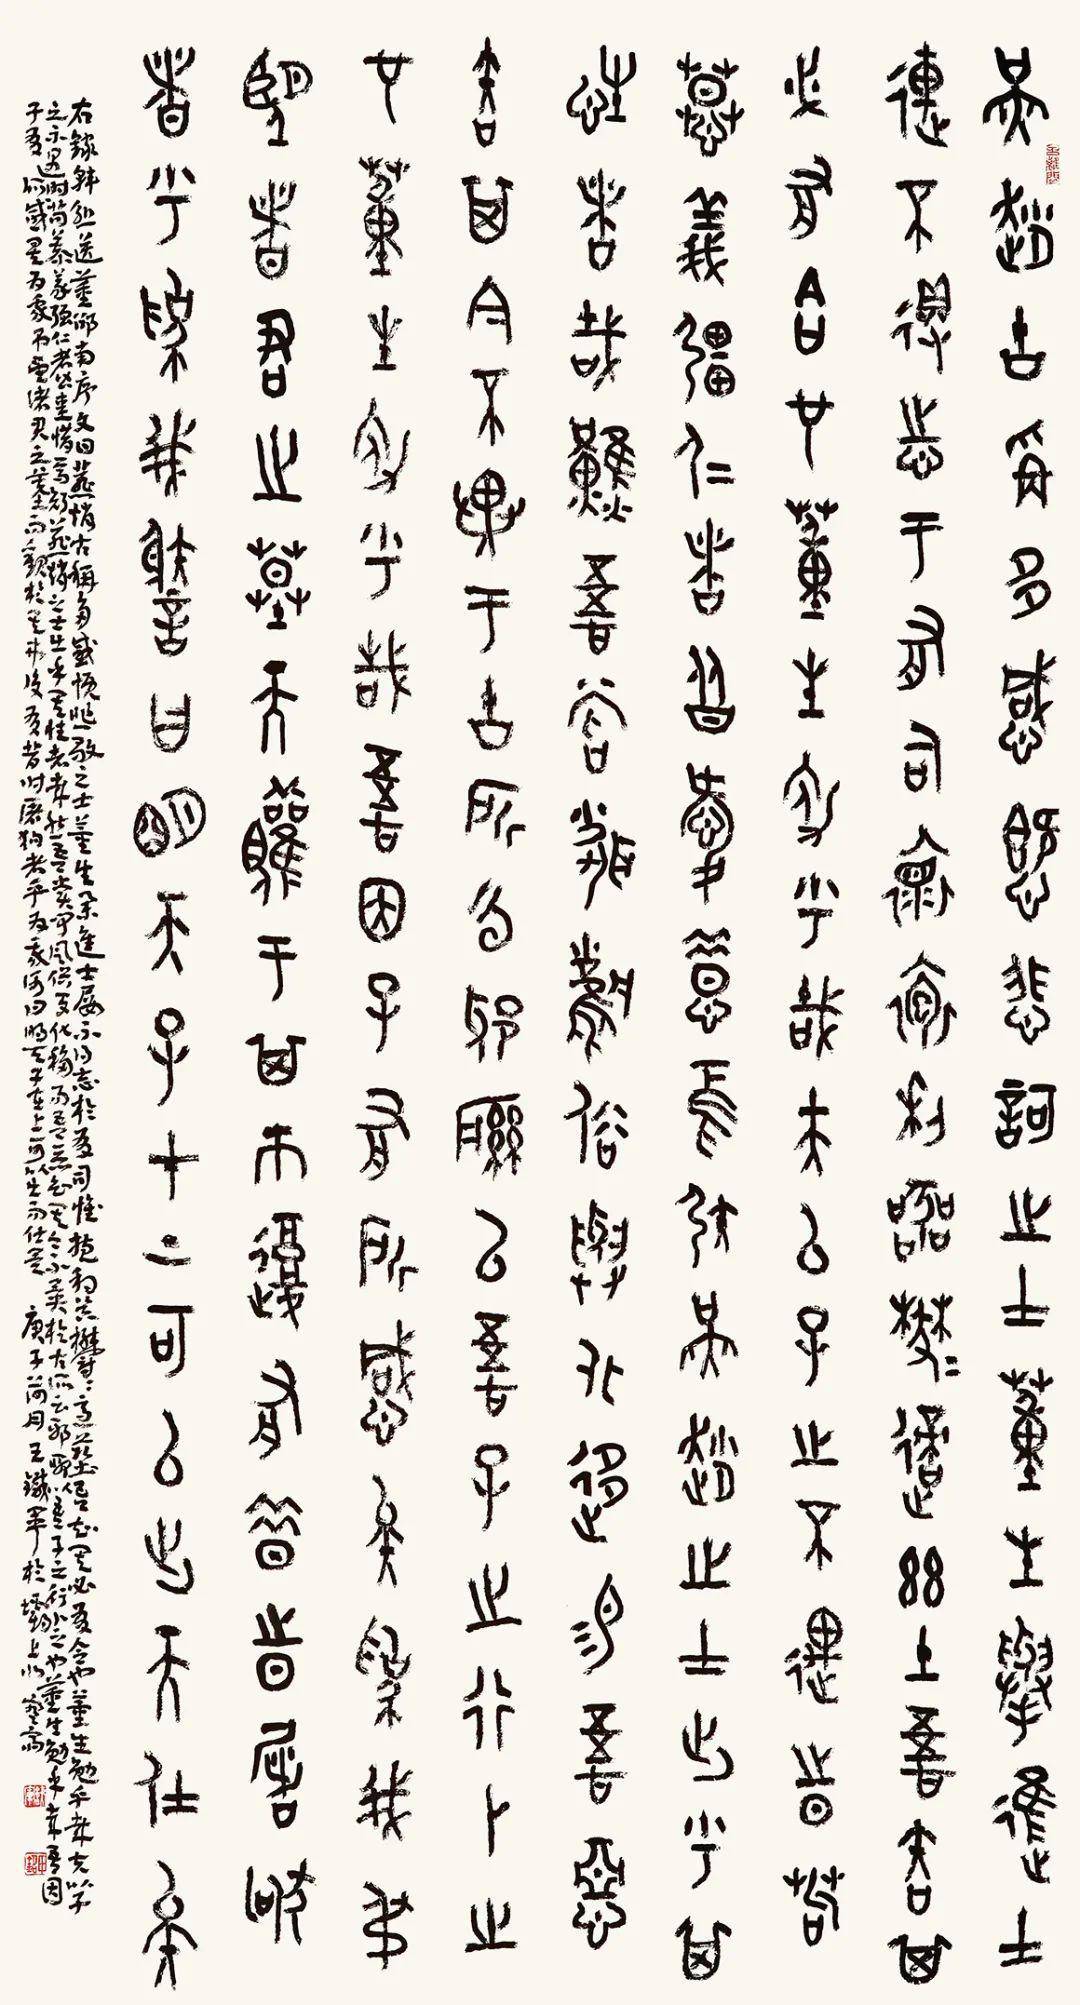 燕趙古稱多感慨悲歌之士董生舉進士
連不得志于有司懷抱利器鬱鬱適茲土吾知其
必有合也董生勉乎哉夫以子之不遇時苟
慕義彊仁者皆愛惜焉矧燕趙之士出乎其
性者哉然吾嘗聞風俗與化移易吾惡
知其今不異于古所云邪聊以吾子之行卜之
也董生勉乎哉吾因子有所感矣為我弔
望諸君之墓而觀于其市復有昔時屠狗
者乎為我謝曰明天子在上可以出而仕矣
右錄韓愈送董邵南序文曰燕趙古稱多感慨悲歌之士董生举進士屢不得志於有司懷抱利器鬱鬱適茲土吾知其必有合也董生勉乎哉夫以子
之不遇時苟慕義强仁者皆愛惜焉矧燕趙之士出乎其性者哉然吾嘗聞風俗與化移易吾惡知其今不異於古所云邪聊以吾子之行卜之也董生勉乎哉吾因
子有所感矣為我弔望諸君之墓而觀於其市復有昔時屠狗者乎為我謝曰明天子在上可以出而仕矣 庚子荷月王鐵軍於